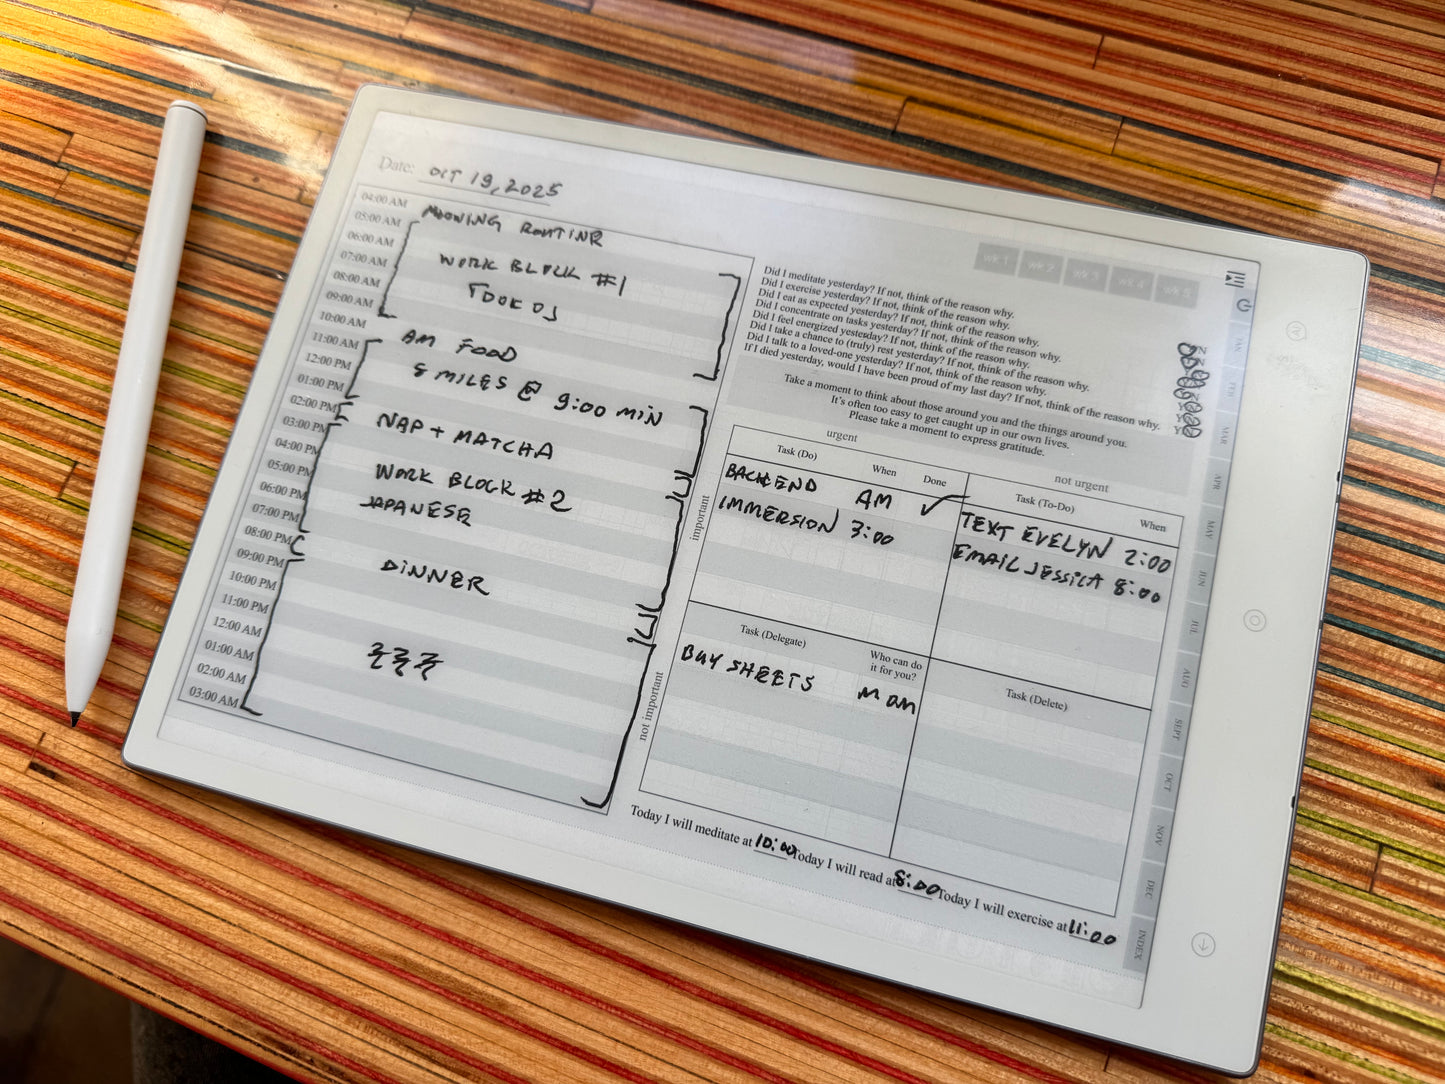 Date: OCT 19, 2025
04:00 AM
05:00 AM
06:00 AM
07:00 AM
08:00 AM
09:00 AM
10:00 AM
11:00 AM
12:00 PM
01:00 PM
02:00 PM
03:00 PM
04:00 PM
05:00 PM
06:00 PM
07:00 PM
08:00 PM
09:00 PM
10:00 PM
11:00 PM
12:00 AM
01:00 AM
02:00 AM
03:00 AM
MORNING ROUTINE
WORK BLOCK #1
AM FOOD
8 MILES @ 9:00 MIN
NAP + MATCHA
WORK BLOCK #2
JAPANESE
DINNER
wk 1 wk 2 wk 3 wk 4 wk 5
Did I meditate yesterday? If not, think of the reason why.
Did I exercise yesterday? If not, think of the reason why.
Did I eat as expected yesterday? If not, think of the reason why.
Did I concentrate on tasks yesterday? If not, think of the reason why.
Did I feel energized yesterday? If not, think of the reason why.
Did I take a chance to (truly) rest yesterday? If not, think of the reason why.
Did I talk to a loved-one yesterday? If not, think of the reason why.
If I died yesterday, would I have been proud of my last day? If not, think of the reason why.
Take a moment to think about those around you and the things around you.
It's often too easy to get caught up in our own lives.
Please take a moment to express gratitude.
urgent
not urgent
important
not important
Task (Do) When Done
BACKEND AM ✓
IMMERSION 3:00
Task (To-Do) When
TEXT EVELYN 2:00
EMAIL JESSICA 8:00
Task (Delegate) Who can do
it for you?
BUY SHEETS MOM
Task (Delete)
Today I will meditate at 10:00 Today I will read at 8:00 Today I will exercise at 11:00
JAN
FEB
MAR
APR
MAY
JUN
JUL
AUG
SEPT
OCT
NOV
DEC
INDEX